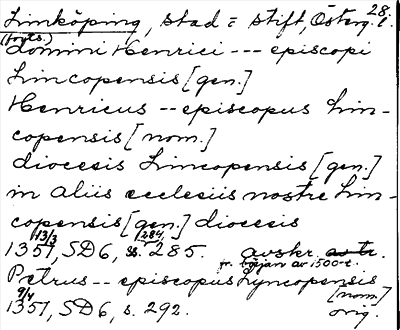 28.
Linköping, stad = stift, Österg. l.
(forts.)
domini Henrici --- episcopi
Lincopensis [gen.]
Henricus -- episcopus Lin-
copensis [nom.]
diocesis Lincopensis [gen.]
in aliis ecclesiis nostre Lin-
copensis [gen.] diocesis
13/3 284
1351, SD6, s. 285. avskr.
fr. början av 1500-t.
Petrus -- episcopus Lyncopensis
[nom.]
9/4
1351, SD6, s. 292. orig.